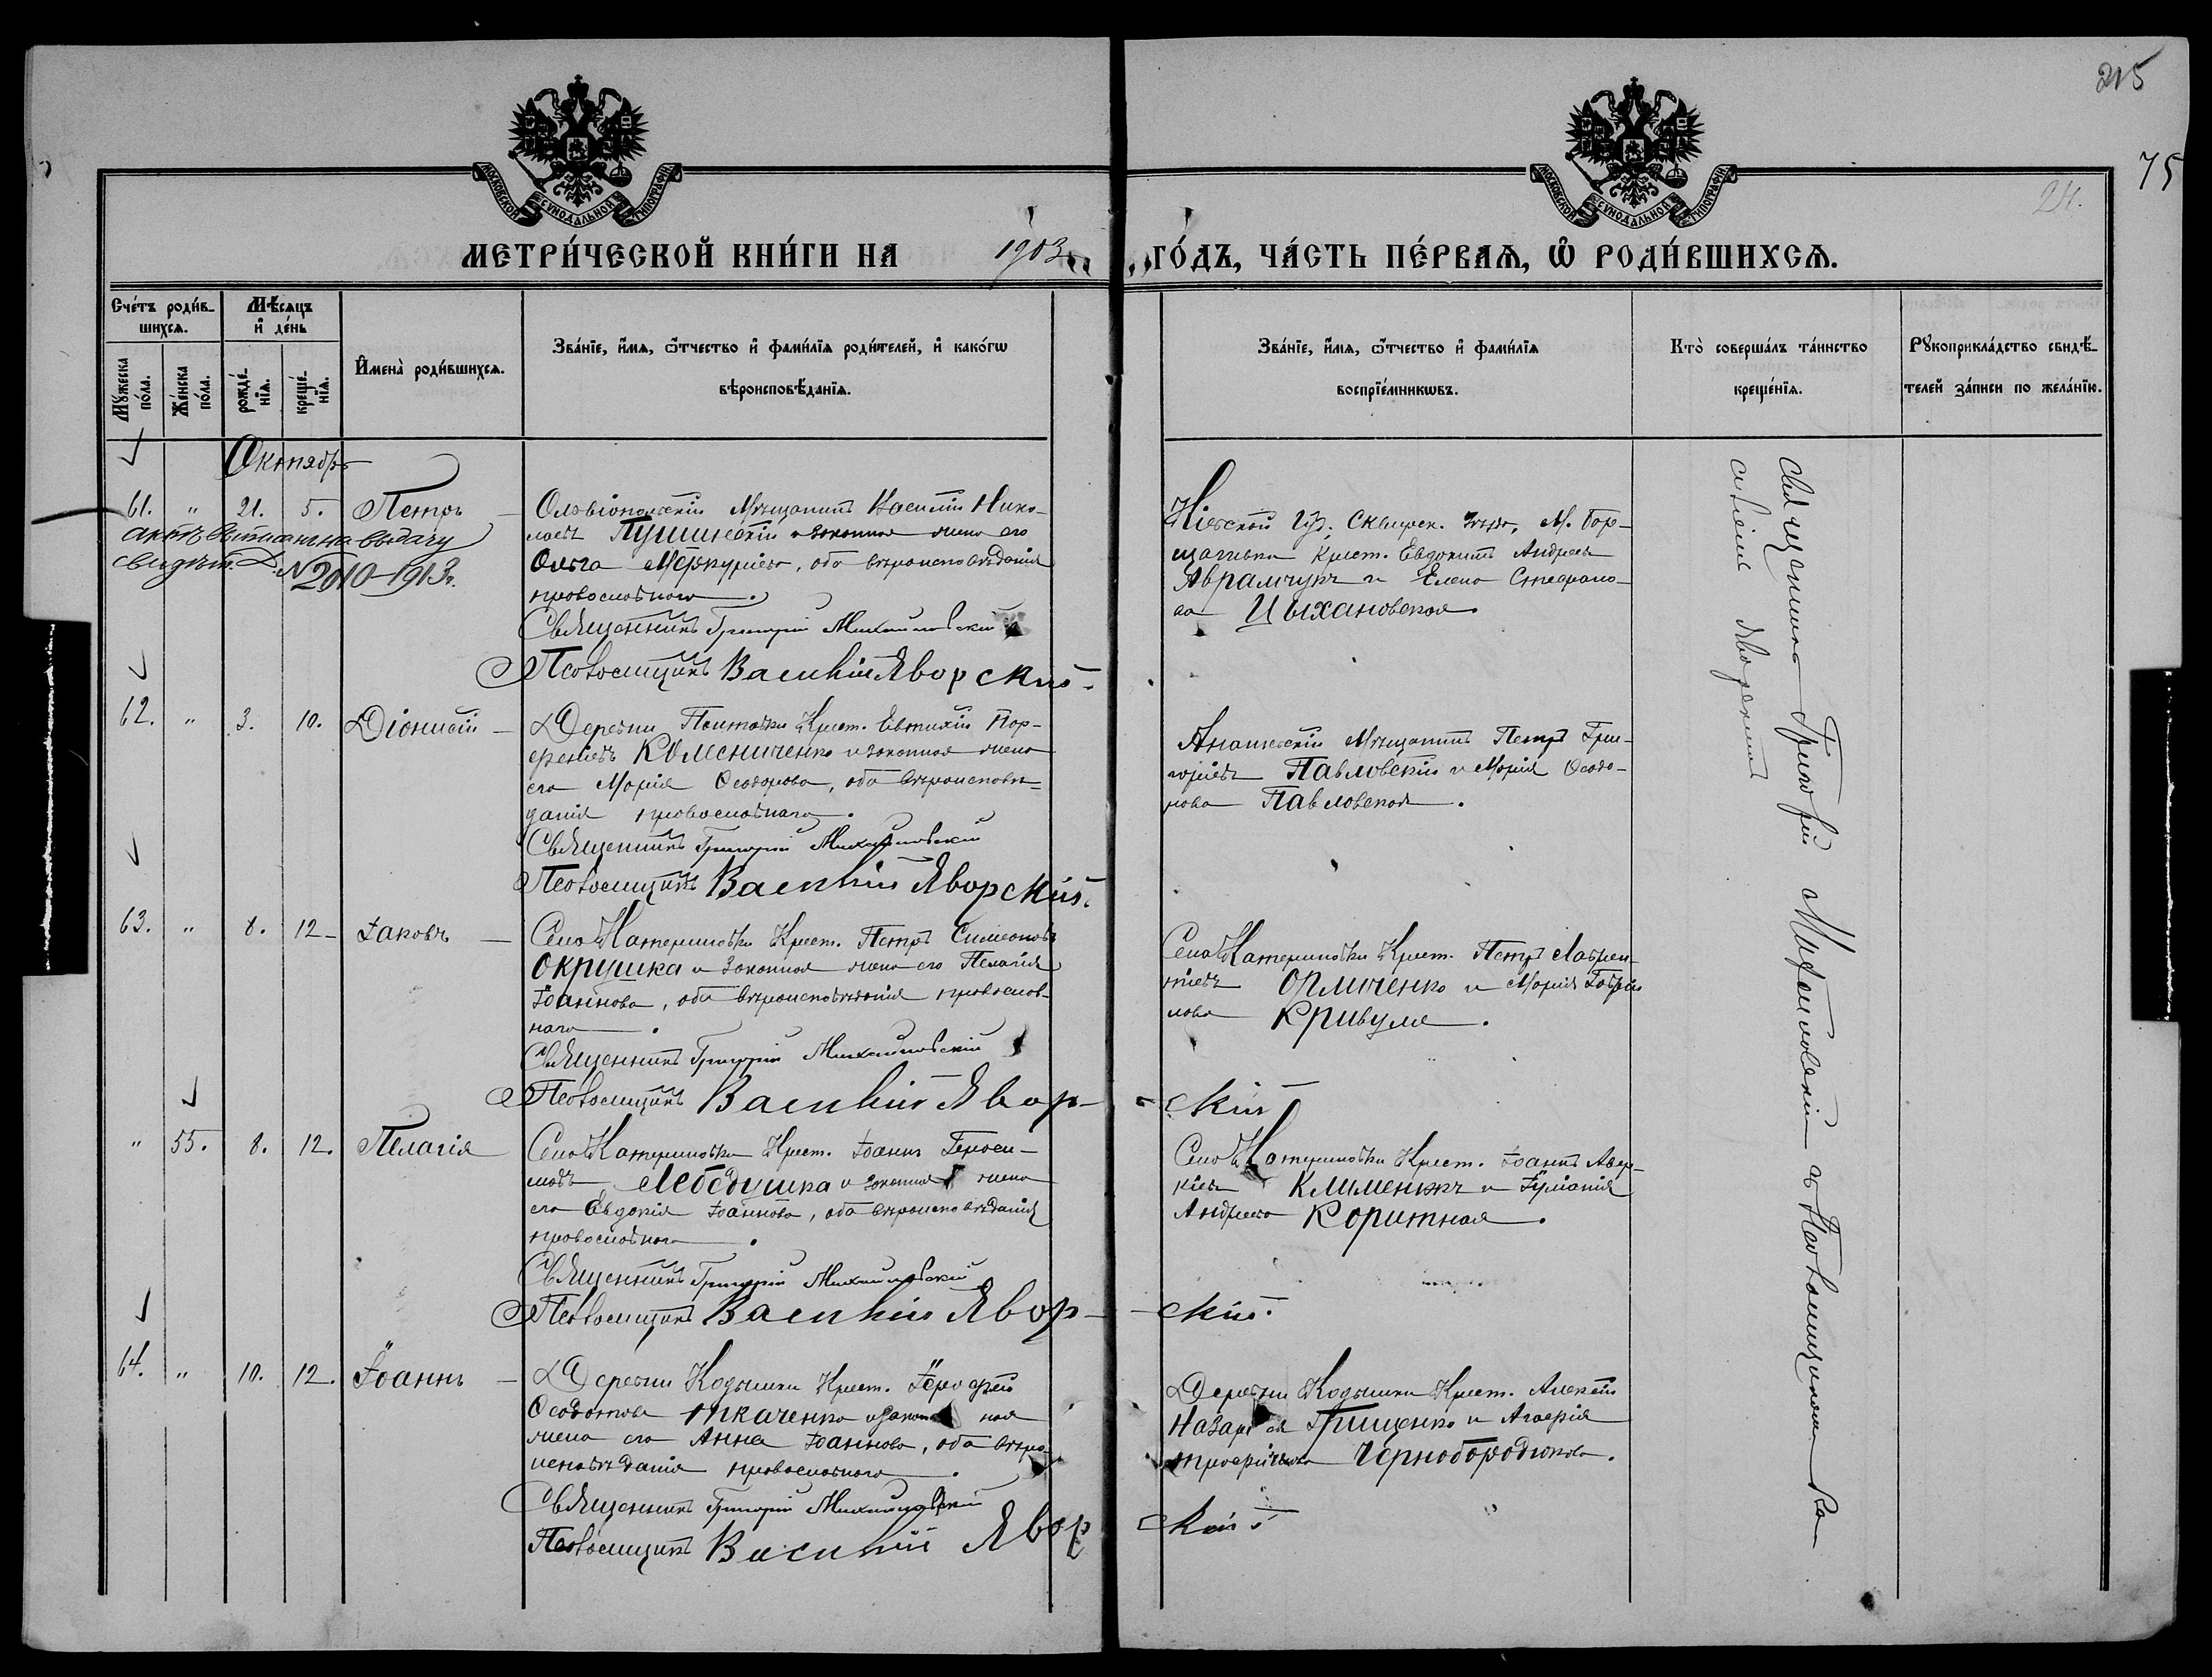 215
75
24.
МОСКОВСКОЙ СѴНОДАЛЬНОЙ ТИПОГРАФІИ
МОСКОВСКОЙ СѴНОДАЛЬНОЙ ТИПОГРАФІИ
МЕТРИ́ЧЕСКОЙ КНИ́ГИ НА 1903 ГО́ДЪ, ЧА́СТЬ ПЕ́РВАѦ, Ѿ РОДИ́ВШИХСѦ.
Сче́тъ роди́в-
шихсѧ.
Мꙋжеска по́ла.
Же́нска по́ла.
Мѣ́сѧцъ
и҆ де́нь
рожде́-
нїѧ.
креще́-
нїѧ.
И҆мена̀ роди́вшихсѧ.
Зва́нїе, и҆́мѧ, ѻ҆́тчество и҆ фами́лїѧ роди́телей, и҆ како́гѡ
вѣроисповѣ́данїѧ.
Зва́нїе, и҆́мѧ, ѻ҆́тчество и҆ фами́лїѧ
воспрїе́мникѡвъ.
Кто̀ соверша́лъ та́инство
креще́нїѧ.
Рꙋкоприкла́дство свидѣ́-
телей за́писи по жела́нїю.
Октябрь
61. " 21. 5. Петръ —
актъ выписанъ на выдачу
свидѣт. № 2010–1913г.
Ольвіопольскій Мѣщанинъ Василій Нико-
лаевъ Пушинскій и законная жена его
Ольга Меркуріева, оба вѣроисповѣданія
православнаго.
Священникъ Григорій Михайловскій
Псаломщикъ Василій Яворскій.
Кіевской Губ. Сквирск. уѣзда, М.
крест. Евдокимъ Андреевъ
Аврамчукъ и Елена Стефано-
ва Цыхановская.
62. " 3. 10. Діонисій —
Деревни Крест. Евтихій Пор-
феніевъ Колесниченко и законная жена
его Марія Ѳеодорова, оба вѣроисповѣ-
данія православнаго.
Священникъ Григорій Михайловскій
Псаломщикъ Василій Яворскій.
Ананьевскій Мѣщанинъ Петръ Гри-
горіевъ Павловскій и Марія Ѳеодо-
рова Павловская.
63. " 8. 12 – Іаковъ —
Села Катериновки Крест. Петръ Симеоновъ
Окрушка и законная жена его Пелагія
Іоаннова, оба вѣроисповѣданія православ-
наго.
Священникъ Григорій Михайловскій
Псаломщикъ Василій Явор-
скій
Села Катериновки Крест. Петръ Лаврен-
тіевъ и Марія Гаврі
лова Кривуля.
" 55. 8. 12. Пелагія
Села Катериновки Крест. Іоаннъ Гераси-
мовъ Лебедушка и законная жена
его Евдокія Іоаннова, оба вѣроисповѣданія
православнаго.
Священникъ Григорій Михайловскій
Псаломщикъ Василій Явор-
скій.
Села Катериновки Крест. Іоаннъ Авер-
кіевъ и Іуліанія
Андреева Коритная.
64. " 10. 12. Іоаннъ —
Деревни Кодымки Крест. Іерофей
Ткаченко и законная
жена его Анна Іоаннова, оба вѣро-
исповѣданія православнаго.
Священникъ Григорій Михайловскій
Псаломщикъ Василій Явор
скій
Деревни Кодымки Крест. Алексій
Назаріевъ Грищенко и Агафія
Чернобородюкова.
Священникъ Григорій Михайловскій съ Псаломщикомъ Ва-
силіемъ Яворскимъ